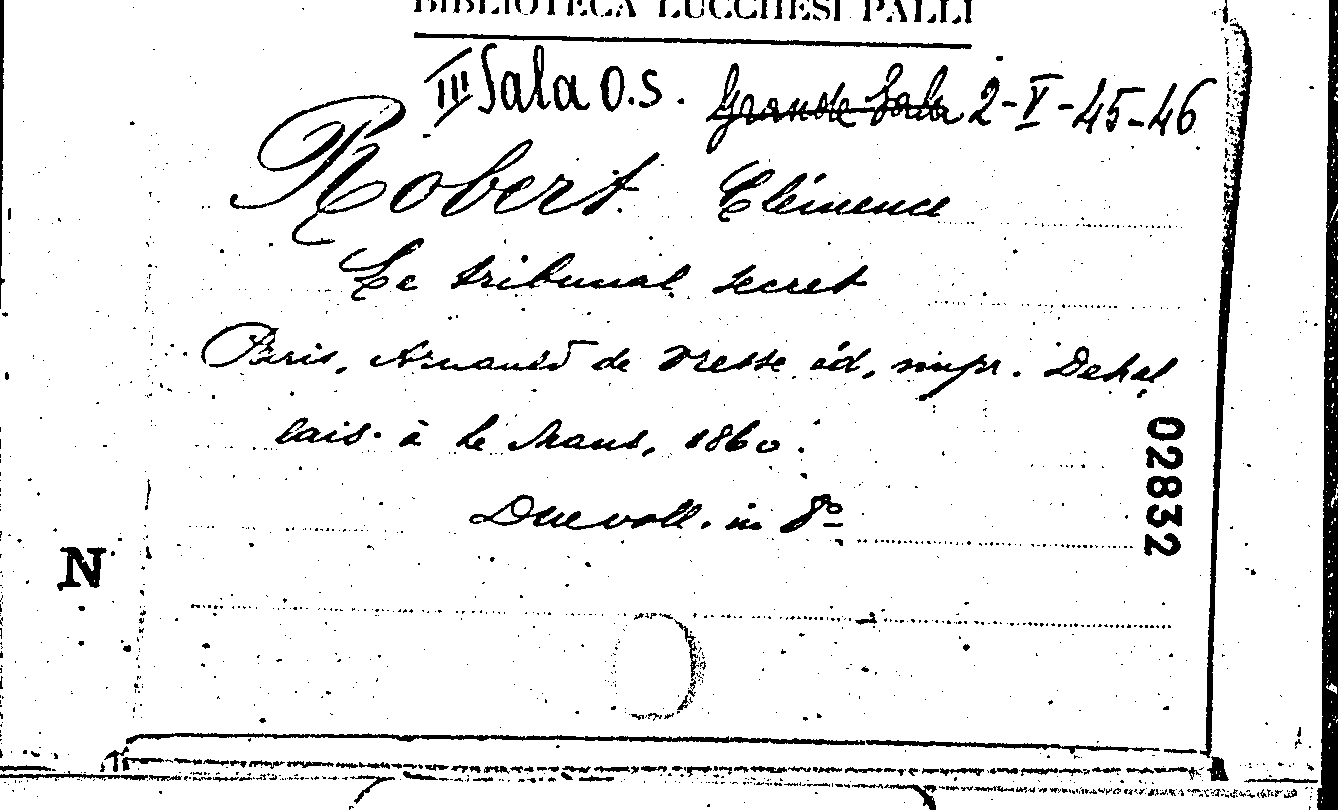 BIBLIOTECA LUCCHESI PALLI
III Sala O.S. Grande Sala 2-V-45-46
Robert Clémence
Le tribunal secret
Paris, Arnauld de Vresse éd, impr. Dehal
lais. à Le Mans, 1860.
Due voll. in 8º
02832
N